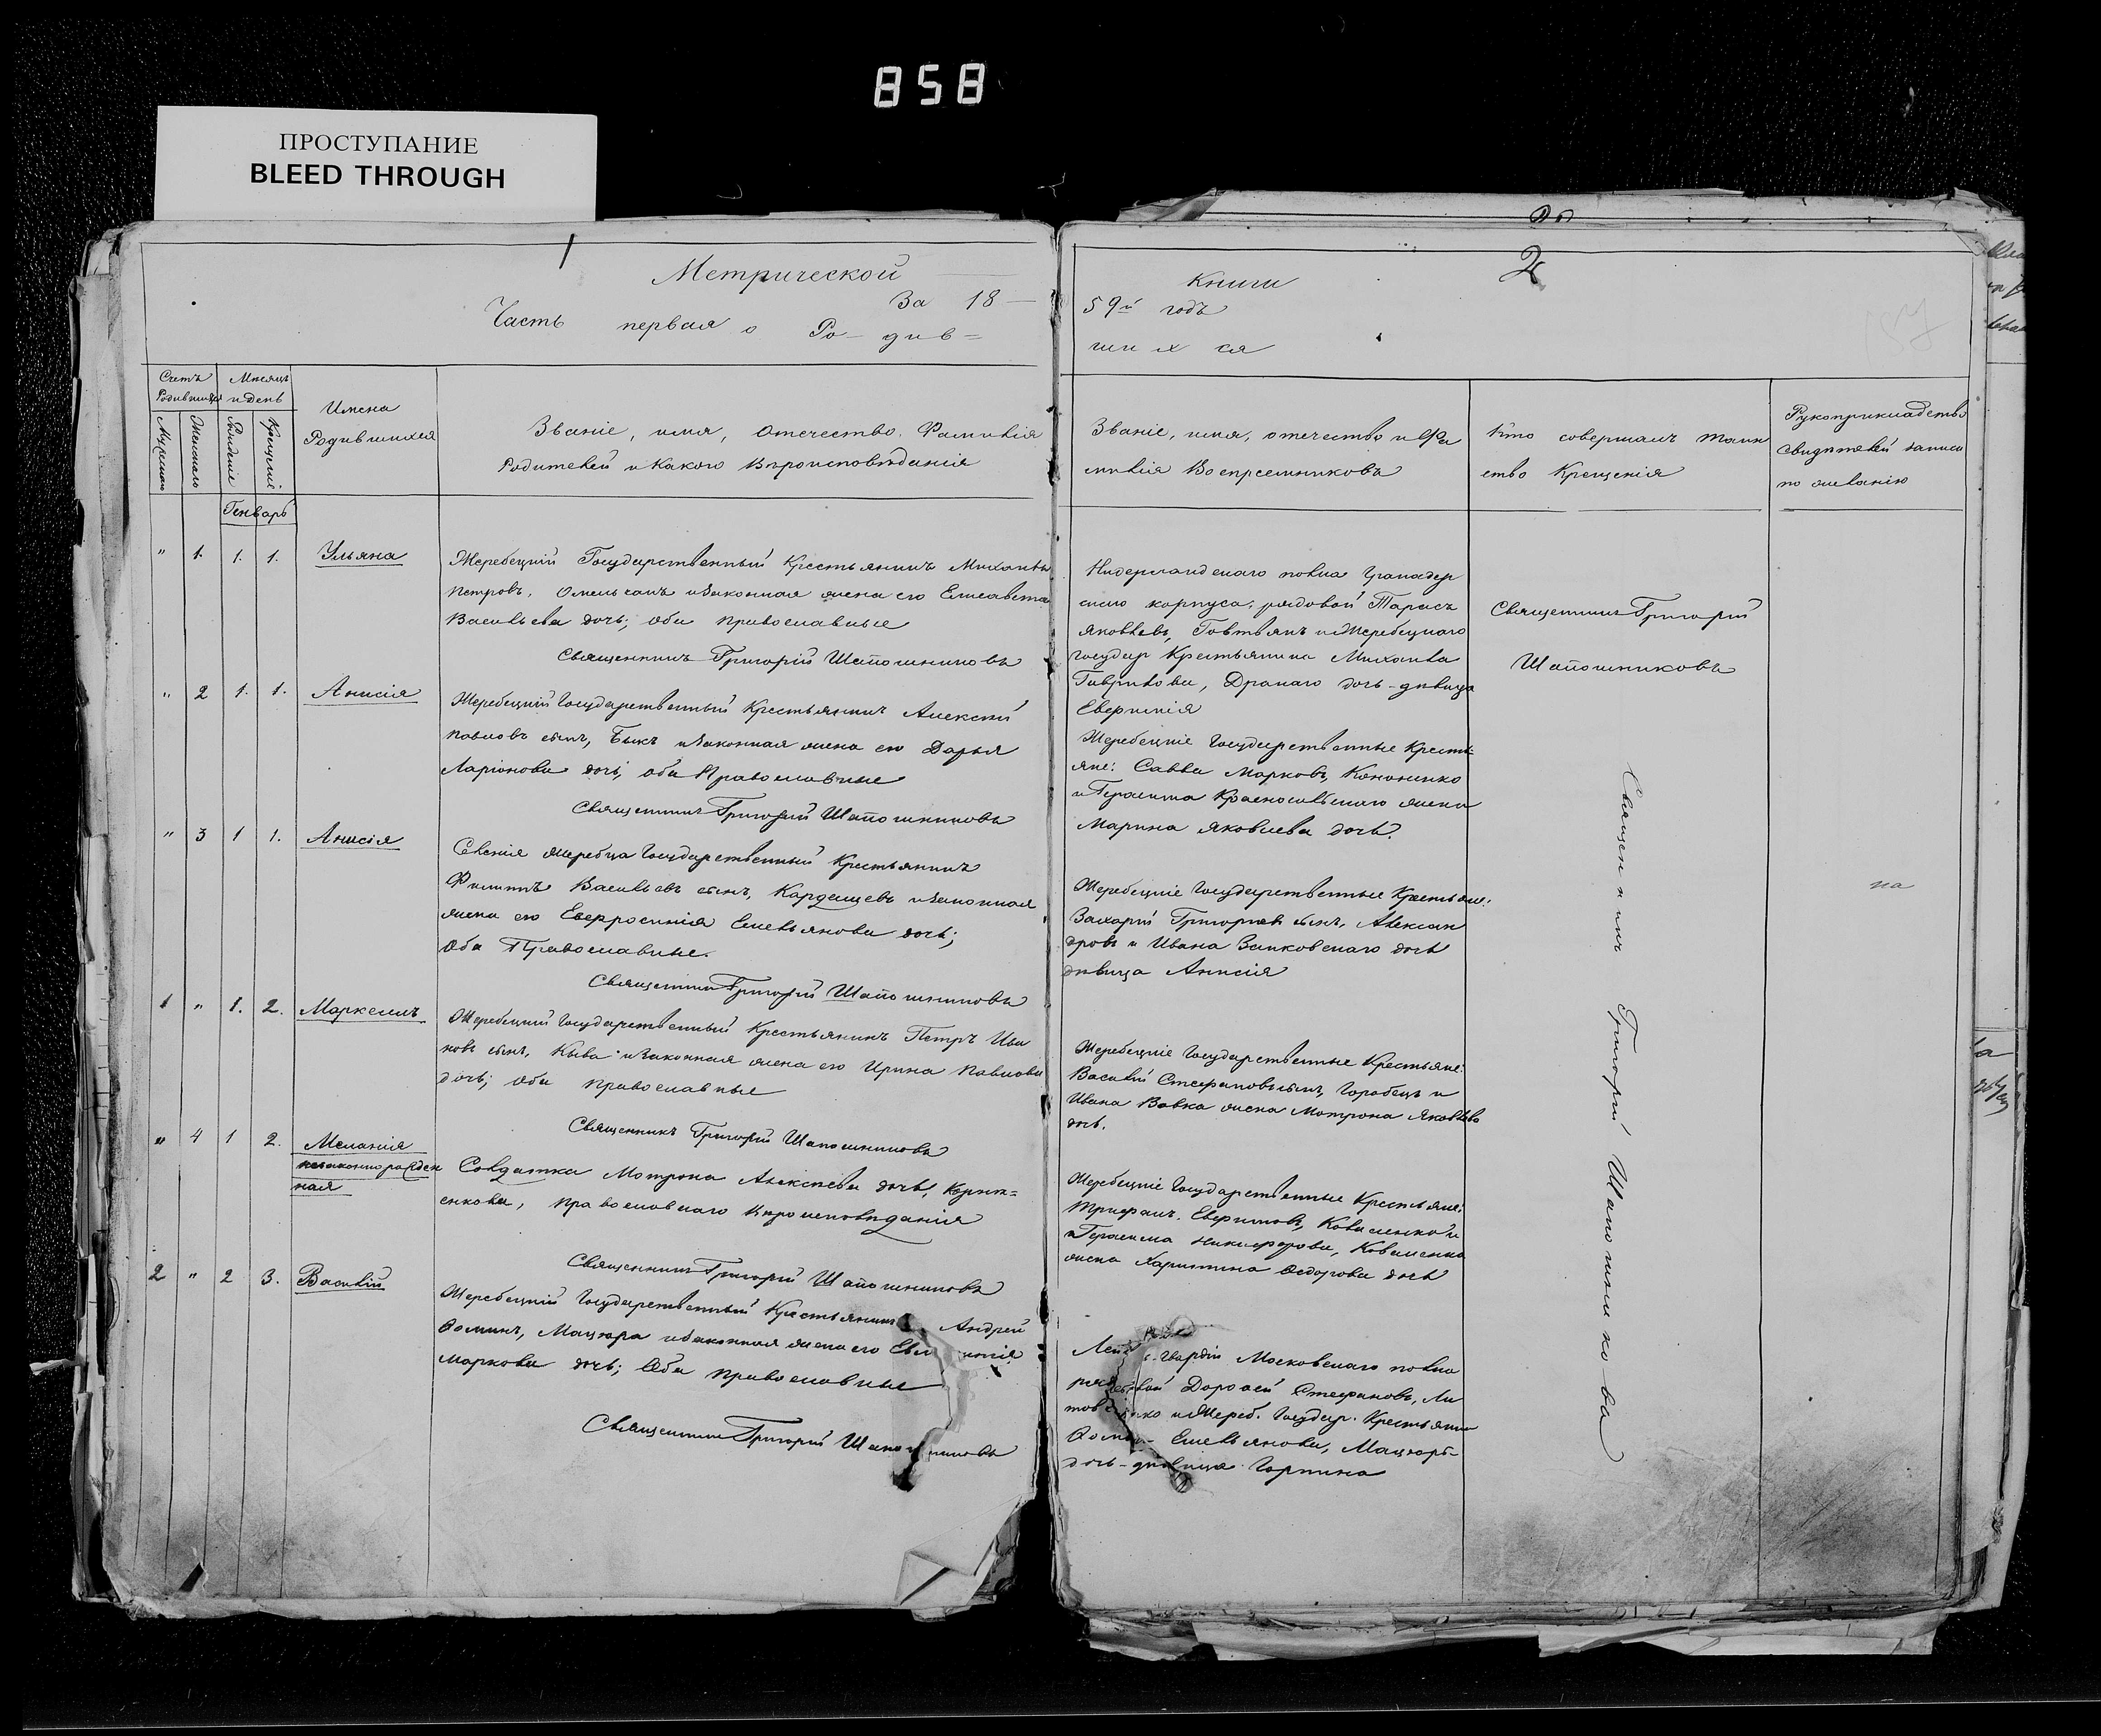 858
ПРОСТУПАНИЕ
BLEED THROUGH
Метрической
За 18
Часть первая о Ро- див=
Счетъ Родившихся
Мѣсяцъ и День
Имена
Родившихся
Мужескаго
Женскаго
Рожденіе
Крещеніе
Званіе, имя, Отечество, Фамилія
Родителей и Какого Вѣроисповѣданія
Генварь
" 1. 1. 1. Ульяна
Жеребецкій Государственный Крестьянинъ Михаилъ
Петровъ, Омельсанъ и Законная жена его Елисавета
Васильева дочь; Оба православные
Священникъ Григорій Шапошниковъ
" 2 1. 1. Анисія
Жеребецкій Государственный Крестьянинъ Алексій
Павловъ сынъ, Быкъ и Законная жена его Дарья
Ларіонова дочь; Оба Православные
Священникъ Григорій Шапошниковъ
" 3 1 1. Анисія
Селенія Жеребца Государственный Крестьянинъ
Филиппъ Васильевъ сынъ, Кардашевъ и Законная
жена его Евфросинія Емельянова дочь;
Оба Православные.
Священникъ Григорій Шапошниковъ
1 " 1. 2. Маркеллъ
Жеребецкій Государственный Крестьянинъ Петръ Ива
новъ сынъ, Кива и Законная жена его Ирина Павлова
дочь; Оба православные
Священникъ Григорій Шапошниковъ
" 4 1 2. Меланія
незаконнорожден
ная
Солдатка Мотрона Алексѣева дочь,
енкова, православнаго Вѣроисповѣданія
Священникъ Григорій Шапошниковъ
2 " 2 3. Василій
Жеребецкій Государственный Крестьянинъ Андрей
Ѳоминъ, Мацюра и Законная жена его
Маркова дочь; Оба православные
Священникъ Григорій Шапошниковъ
2
Книги
59й годъ
шихся
Званіе, имя, отечество и Фа
милія Воспреемниковъ
Кто совершалъ таин
ство Крещенія
Рукоприкладство
свидѣтелей записи
по желанію
Нидерландскаго полка Гранадер
скаго корпуса, рядовой Тарасъ
Яковлевъ, Говтвянъ и Жеребецкаго
Государ Крестьянина Михаила
Гаврилова, Дранаго дочь-дѣвица
Евфимія
Священникъ Григорій
Шапошниковъ
Жеребецкіе Государственные Кресть=
яне: Савва Марковъ, Кононенко
и Герасима Красносельскаго жена
Марина Яковлева дочь.
Жеребецкіе Государственные Крестьяне:
Захарій Григорьевъ сынъ, Алексан
дровъ и Ивана Заиковскаго дочь
дѣвица Анисія
на
Жеребецкіе Государственные Крестьяне:
Василій Стефановъ сынъ, Горобецъ и
Ивана Вовка жена Мотрона Яковлева
дочь.
Жеребецкіе Государственные Крестьяне:
Трифанъ Евфимовъ, Коваленко и
Герасима Никифорова, Коваленка
жена Харитина Ѳедорова дочь
Лейбъ-Гвардіи Московскаго полка
рядовой Дороѳей Стефановъ, Ли
и Жереб. Государ. Крестьянина
Ѳомы Емельянова, Мацюры
дочь-дѣвица Горпина
Священникъ Григорій Шапошниковъ